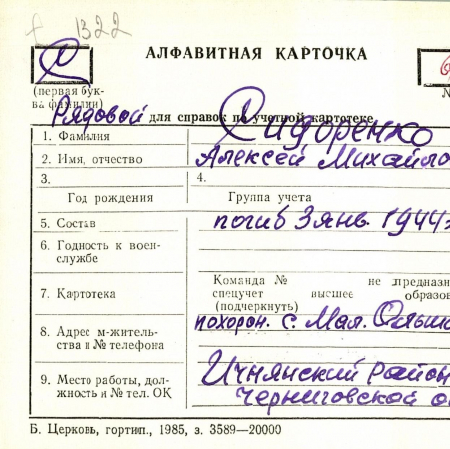 1322
АЛФАВИТНАЯ КАРТОЧКА
С
(первая бук-
ва фамилии)
№
Рядовой для справок по учетной картотеке
1. Фамилия Сидоренко
2. Имя, отчество Алексей Михайло
3. 4.
Год рождения Группа учета
5. Состав погиб 3 янв. 1944г
6. Годность к воен-
службе
7. Картотека
Команда № не предназна
спецучет высшее образов
(подчеркнуть)
8. Адрес м-житель-
ства и № телефона
похорон. с. Мал.
9. Место работы, дол-
жность и № тел. ОК
Ичнянский район
Черниговской о
Б. Церковь, гортип., 1985, з. 3589—20000